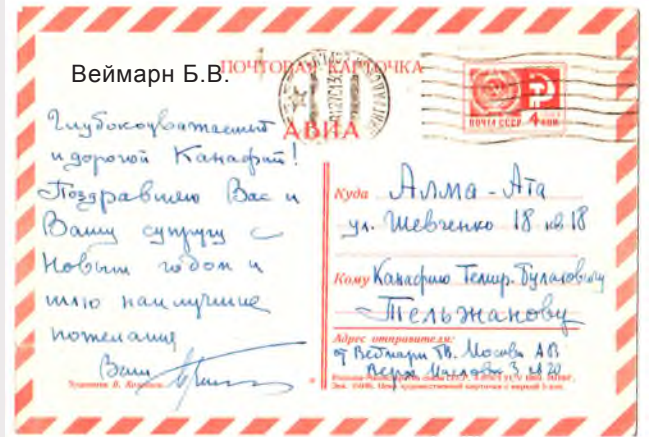 Веймарн Б.В.
ПОЧТОВАЯ КАРТОЧКА
АВИА
ПОЧТА СССР 4 КОП
Глубокоуважаемый
и дорогой Канафий!
Поздравляю Вас и
Вашу супругу с
Новым годом и
шлю наилучшие
пожелания
Ваш
Куда Алма-Ата
ул. Шевченко 18 кв 18
Кому Канафию Темир-Булатовичу
Тельжанову
Адрес отправителя:
от Веймарн Б.В. Москва
Верх Масловка 3,
Художник В.